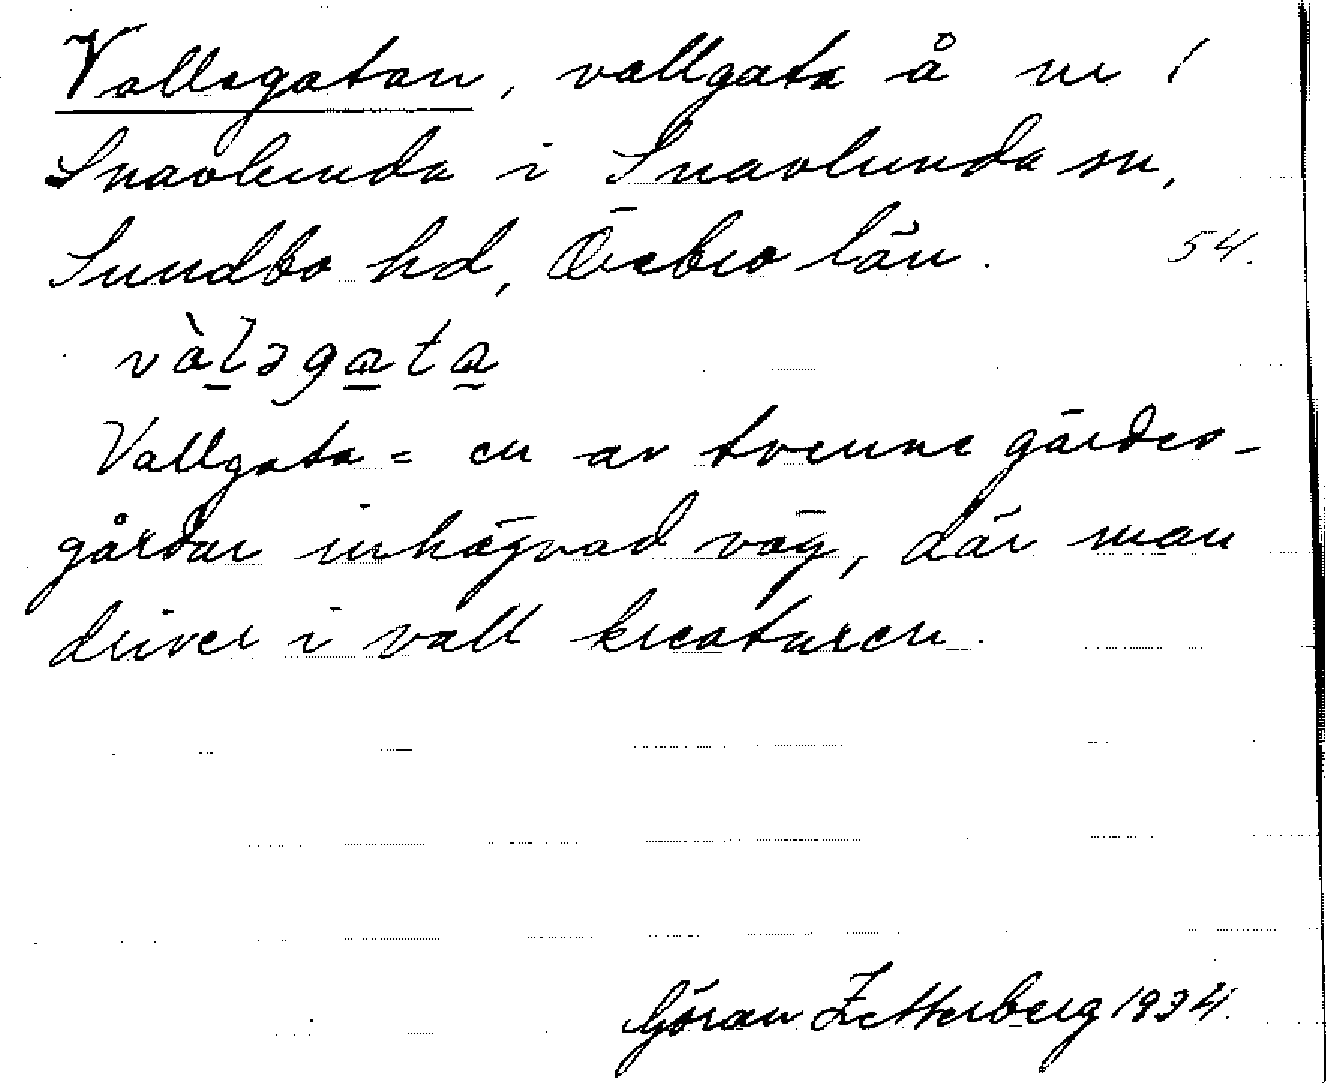 Vallegatan, vallgata å nr 1
Snavlunda i Snavlunda sn,
Sundbo hd, Örebro län. 54.
vàlǝgata
Vallgata = en av tvenne gärdes-
gårdar inhägnad väg, där man
driver i vall kreaturen.
Göran Zetterberg 1934.